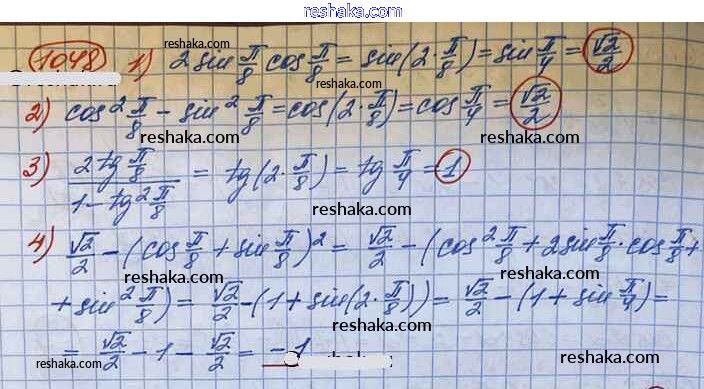 reshaka.com
1048 1) 2 sin π/8 cos π/8 = sin(2·π/8) = sin π/4 = √2/2
reshaka.com
reshaka.com
2) cos² π/8 - sin² π/8 = cos(2·π/8) = cos π/4 = √2/2
reshaka.com
reshaka.com
3) 2 tg π/8 / 1 - tg² π/8 = tg(2·π/8) = tg π/4 = 1
reshaka.com
4) √2/2 - (cos π/8 + sin π/8)² = √2/2 - (cos² π/8 + 2 sin π/8 · cos π/8 +
reshaka.com
reshaka.com
+ sin² π/8) = √2/2 - (1 + sin(2·π/8)) = √2/2 - (1 + sin π/4) =
reshaka.com
= √2/2 - 1 - √2/2 = -1
reshaka.com
reshaka.com
reshaka.com